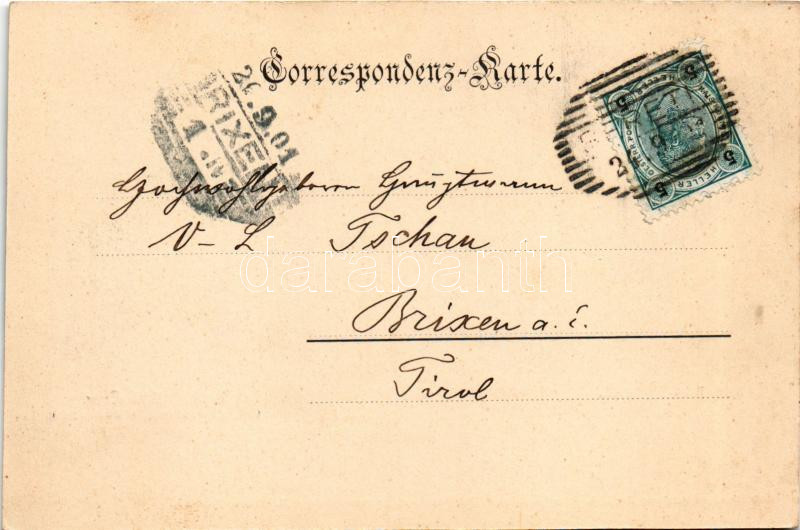 Correspondenz-Karte.
2 .9.01
BRIXEN
1
5
5
5
HELLER
Hochwohlgeboren
V- L Tschan
darabanth
Brixen a. E.
Tirol